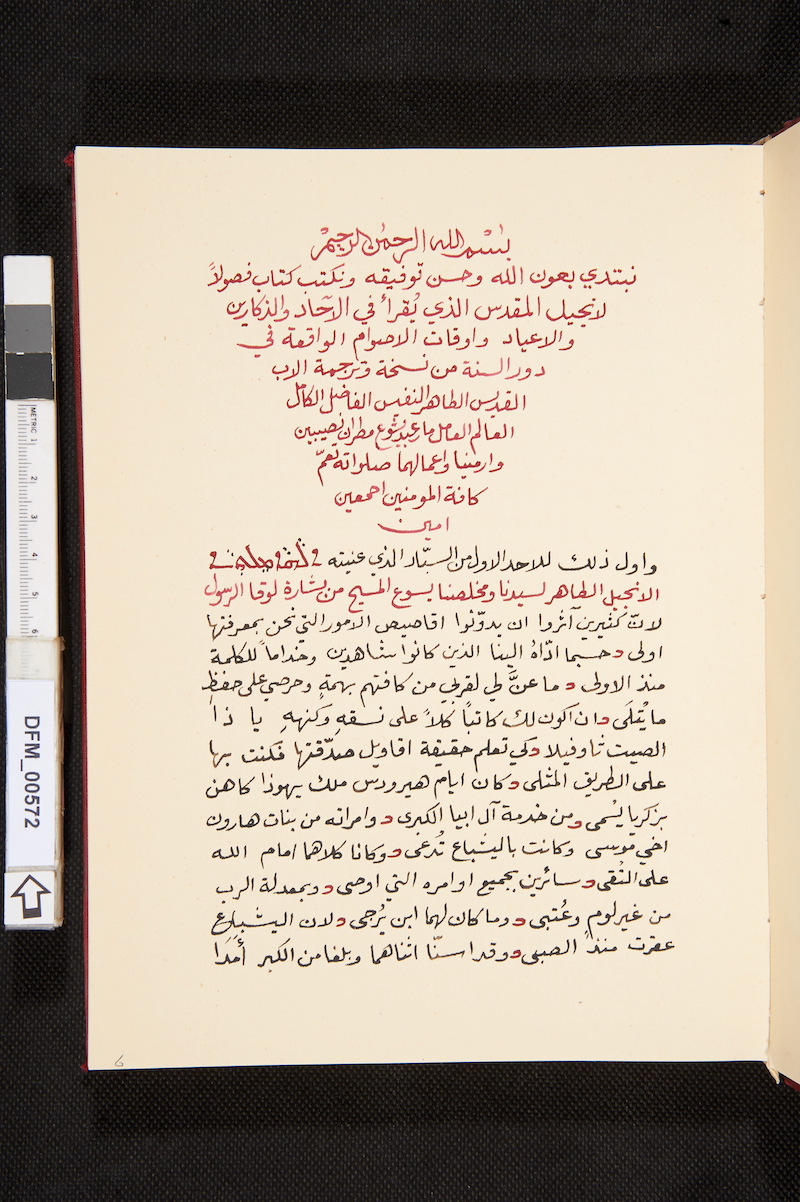 بسم الله الرحمن الرحيم
نبتدي بعون الله وحسن توفيقه ونكتب كتاب فصولاً
لانجيل المقدس الذي يُقرأ في الآحاد والذكارين
والاعياد واوقات الاصوام الواقعة في
دور السنة من نسخة وترجمة الاب
القديس الطاهر النفيس الفاضل الكامل
العالم العامل مار عبد يشوع مطران نصيبين
وارمنيا واعمالهما صلواته تعمّ
كافة المومنين اجمعين
امين
واول ذلك للاحد الاول من السبّار الذي عنيته
الانجيل الطاهر لسيدنا ومخلصنا يسوع المسيح من بشارة لوقا الرسول
لانّ كثيرين آثروا ان يدوّنوا اقاصيص الامور التي نحن بمعرفتها
اولى د حسبما ادّاهُ الينا الذين كانوا شاهدين وخداماً للكلمة
منذ الاولى د ما عنَّ لي لقربي من كافتهم بهمةٍ وحرصي على حفظِ
ما يُتلَى د ان اكون لك كاتباً كلاً على نسقهِ وكنههِ يا ذا
الصيت ثاوفيلا د كي تعلم حقيقة اقاويل صدّقتها فكنت بها
على الطريق المثلى د كان ايام هيرودس ملك يهوذا كاهن
بزكريا يُسمى د ومن خدمة آل ابيا الكبرى د وامراته من بنات هارون
اخي موسى وكانت باليشباع تُدعى د وكانا كلاهما امام الله
على التُقى د سائرين بجميع اوامره التي اوصى د وبمعدلة الرب
من غير لومٍ وعُتبى د وما كان لهما ابن يُرجى د لان اليشباع
عقرت منذ الصبى د وقد اسنّا اثناهما وبلغا من الكبر أَمَدَا
6
METRIC 1 2 3 4 5 6
DFM_00572